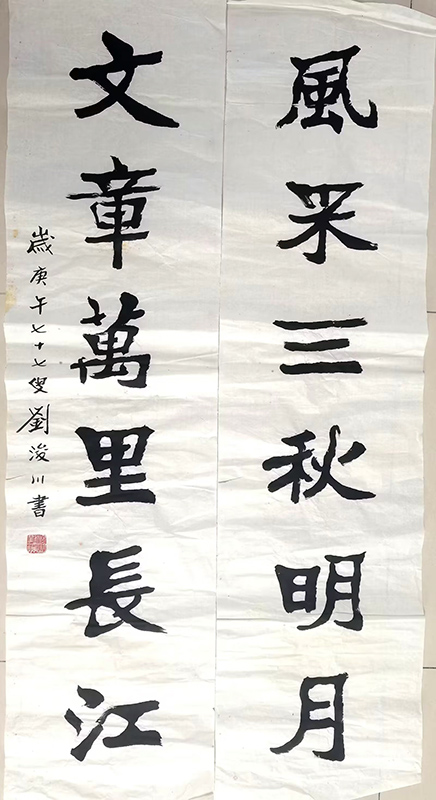 風采三秋明月
文章萬里長江
歲庚午七十七叟劉浚川書